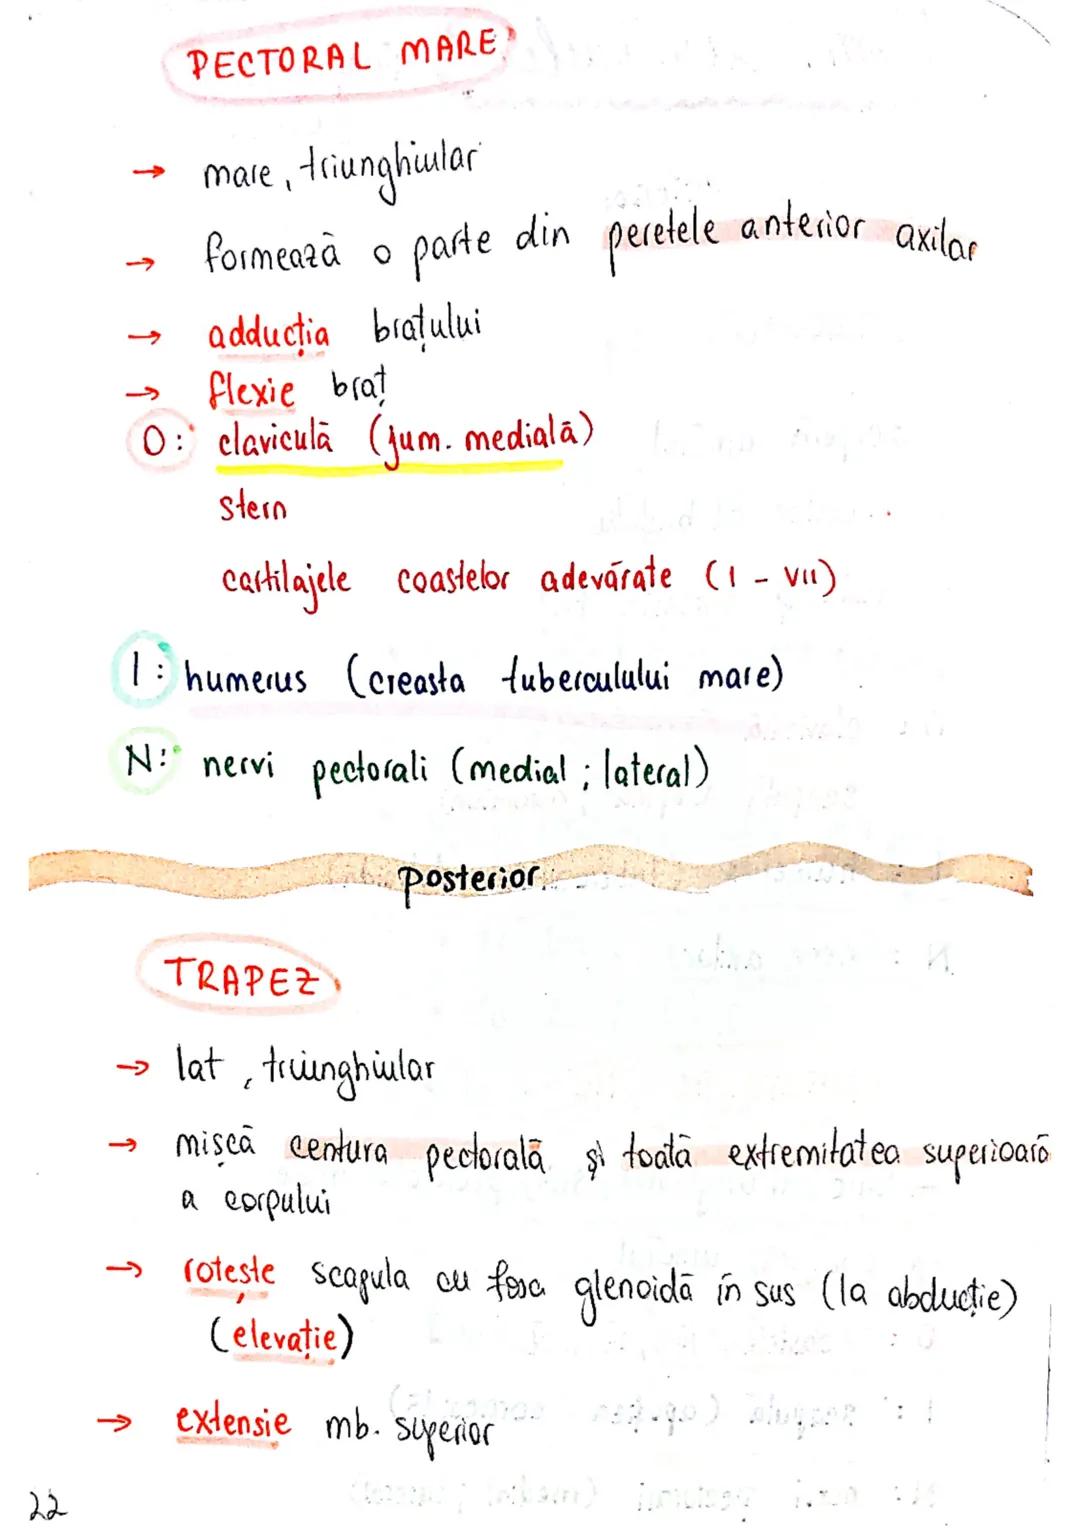 PECTORAL MARE
→ mare, triunghiular
→ formează o parte din peretele anterior axilar
→ adducția brațului
→ flexie braț
O: claviculă (jum. medială)
stern
cartilajele coastelor adevărate (I - VII)
I: humerus (creasta tuberculului mare)
N: nervi pectorali (medial ; lateral)
posterior
TRAPEZ
→ lat, triunghiular
→ mișcă centura pectorală și toată extremitatea superioară
a corpului
→ rotește scapula cu fosa glenoidă în sus (la abducție)
(elevație)
→ extensie mb. superior
22